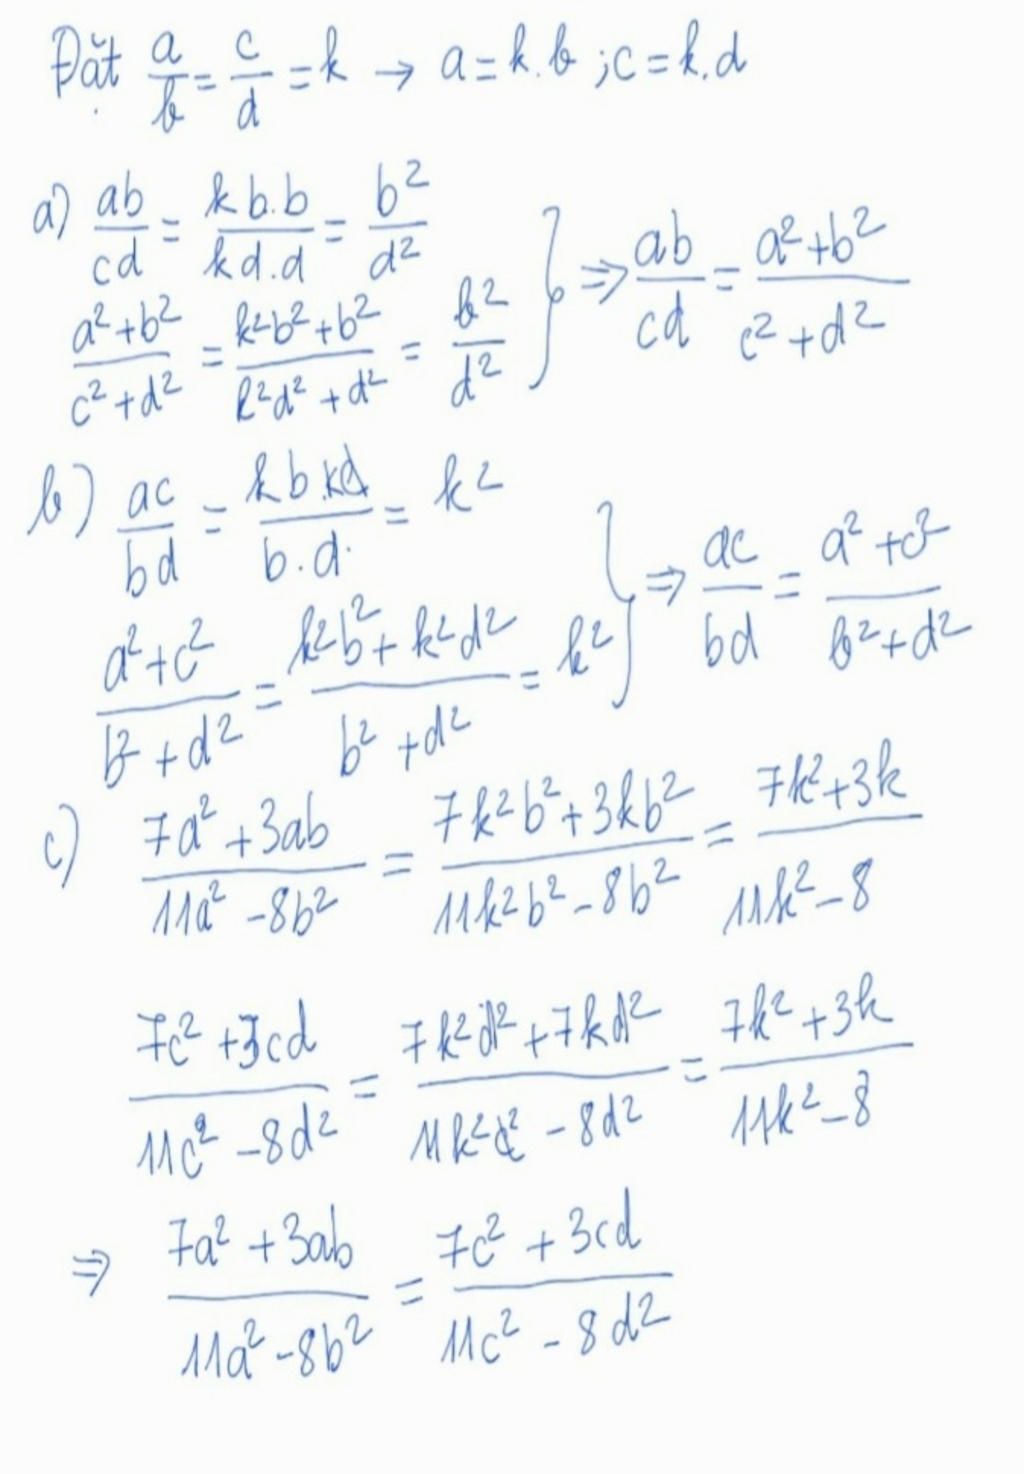 Đặt a/b = c/d = k → a = k.b ; c = k.d
a) ab/cd = kb.b/kd.d = b²/d²
(a²+b²)/(c²+d²) = (k²b²+b²)/(k²d²+d²) = b²/d² } ⇒ ab/cd = (a²+b²)/(c²+d²)
b) ac/bd = kb.kd/b.d = k²
(a²+c²)/(b²+d²) = (k²b²+k²d²)/(b²+d²) = k² } ⇒ ac/bd = (a²+c²)/(b²+d²)
c) (7a²+3ab)/(11a²-8b²) = (7k²b²+3kb²)/(11k²b²-8b²) = (7k²+3k)/(11k²-8)
(7c²+3cd)/(11c²-8d²) = (7k²d²+7kd²)/(11k²d²-8d²) = (7k²+3k)/(11k²-8)
⇒ (7a²+3ab)/(11a²-8b²) = (7c²+3cd)/(11c²-8d²)